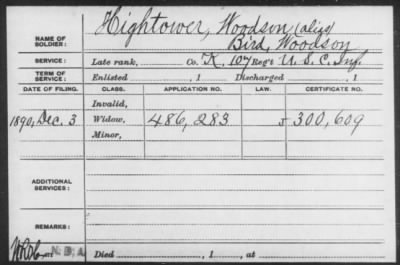 NAME OF SOLDIER: Hightower, Woodson (alias)
Bird, Woodson
SERVICE: Late rank, Co. K, 107 Reg't U. S. C. Inf.
TERM OF SERVICE: Enlisted , 1 Discharged , 1
DATE OF FILING. CLASS. APPLICATION NO. LAW. CERTIFICATE NO.
Invalid,
1890, Dec. 3 Widow, 486,283 300,609
Minor,
ADDITIONAL SERVICES:
REMARKS:
N. D. A.
Died , 1 , at